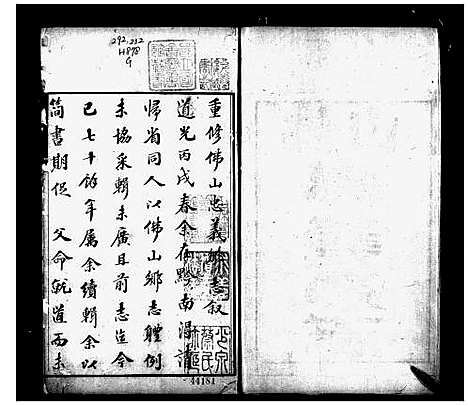 292.212
H878
G
重修佛山忠義鄉志叙
道光丙戌春余在黔南得請
歸省同人以佛山鄉志體例
未協采輯未廣且前志迄今
已七十餘年屬余續輯余以
簡書期促 父命就道而未
44181